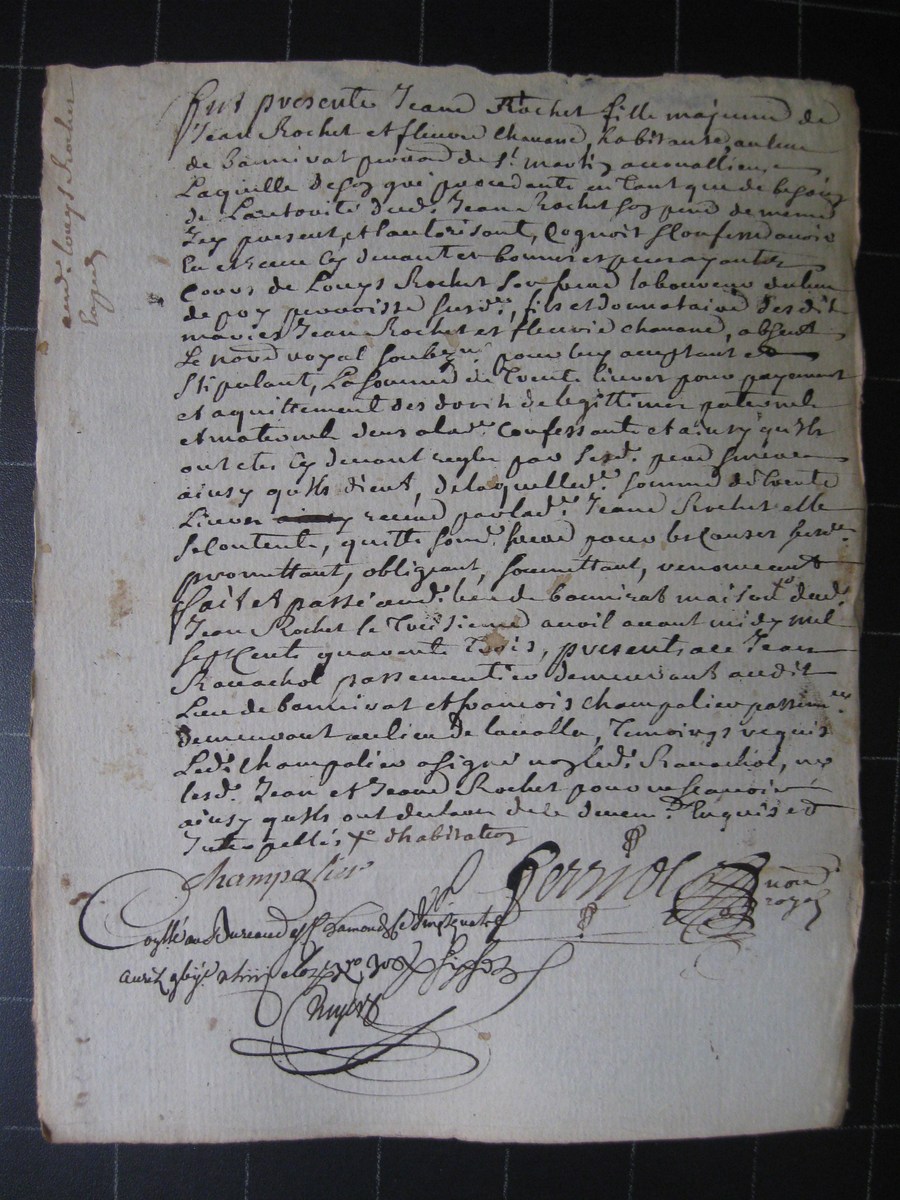 Fut presente Jeane Rochet fille majeure de
Jean Rochet et fleurie Chavane, habitante au lieu
de bannirat parroisse de St martin acoaillieu
Laquelle de son gré procedante en tant que de besoin
de Lautorité dud. Jean Rochet son pere de meme
Icy present, et Lautorisant, Cognoit & Confesse avoir
Eu et Receu Cy devant et bonnes et
Cours de Louys Rochet son frere laboureur du lieu
de poy parroisse susd., fils et donnataire desdits
mariés Jean Rochet et fleurie chavane, absent
Le nore royal soubzné pour luy acceptant et
stipulant, La somme de Trente livres pour payement
et aquittement des droits de legittimes paternele
et maternele deus a lad. Confessante et ainsy quils
ont etes Cy devant regles par lesd. pere
ainsy quils dient, de laquelle d. somme de Trente
Livres receue par lad. Jeane Rochet elle
se Contente, quitte sond. frere pour les Causes susd.
promettant, obligeant, soumettant, renonceant
fait et passé aud. lieu de bannirat maison xo dud.
Jean Rochet le Treisieme avril avant midy mil
sept Cents quarente Trois, presents a ce Jean
Ravachol passementier demeurant audit
Lieu de bannirat et francois champalier passemer
demeurant au lieu de lavalla, Temoings requis
Led. Champalier a signé non led. Ravachol, ny
lesd. Jean et Jeane Rochet pour ne scavoir
ainsy quils ont declaré de ce deuement Enquis et
Interpellés xo d'habitation
Champalier
Ferriol nore
royal
au Bureau de St Chamond le vingt quatre
avril
aud. Louys Rochet